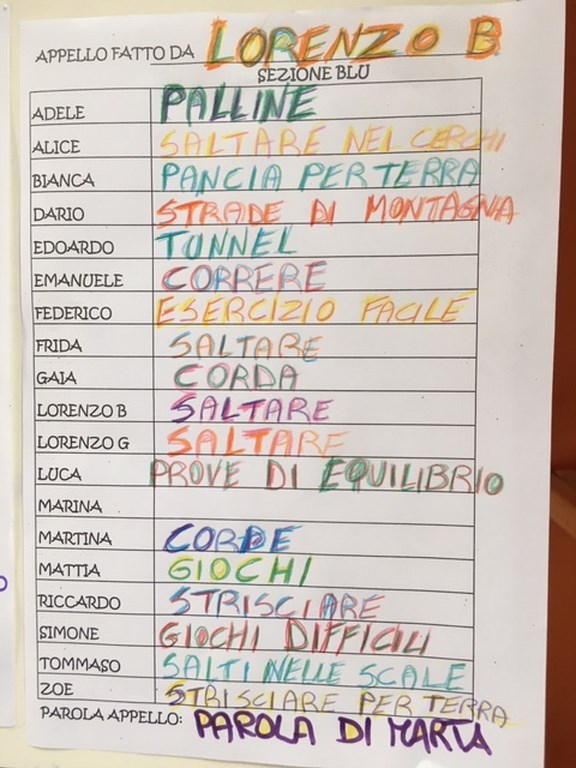 APPELLO FATTO DA LORENZO B
SEZIONE BLU
ADELE PALLINE
ALICE SALTARE NEL CERCHI
BIANCA PANCIA PER TERRA
DARIO STRADE DI MONTAGNA
EDOARDO TUNNEL
EMANUELE CORRERE
FEDERICO ESERCIZIO FACILE
FRIDA SALTARE
GAIA CORDA
LORENZO B SALTARE
LORENZO G SALTARE
LUCA PROVE DI EQUILIBRIO
MARINA
MARTINA CORDE
MATTIA GIOCHI
RICCARDO STRISCIARE
SIMONE GIOCHI DIFFICILI
TOMMASO SALTI NELLE SCALE
ZOE STRISCIARE PER TERRA
PAROLA APPELLO: PAROLA DI MARTA